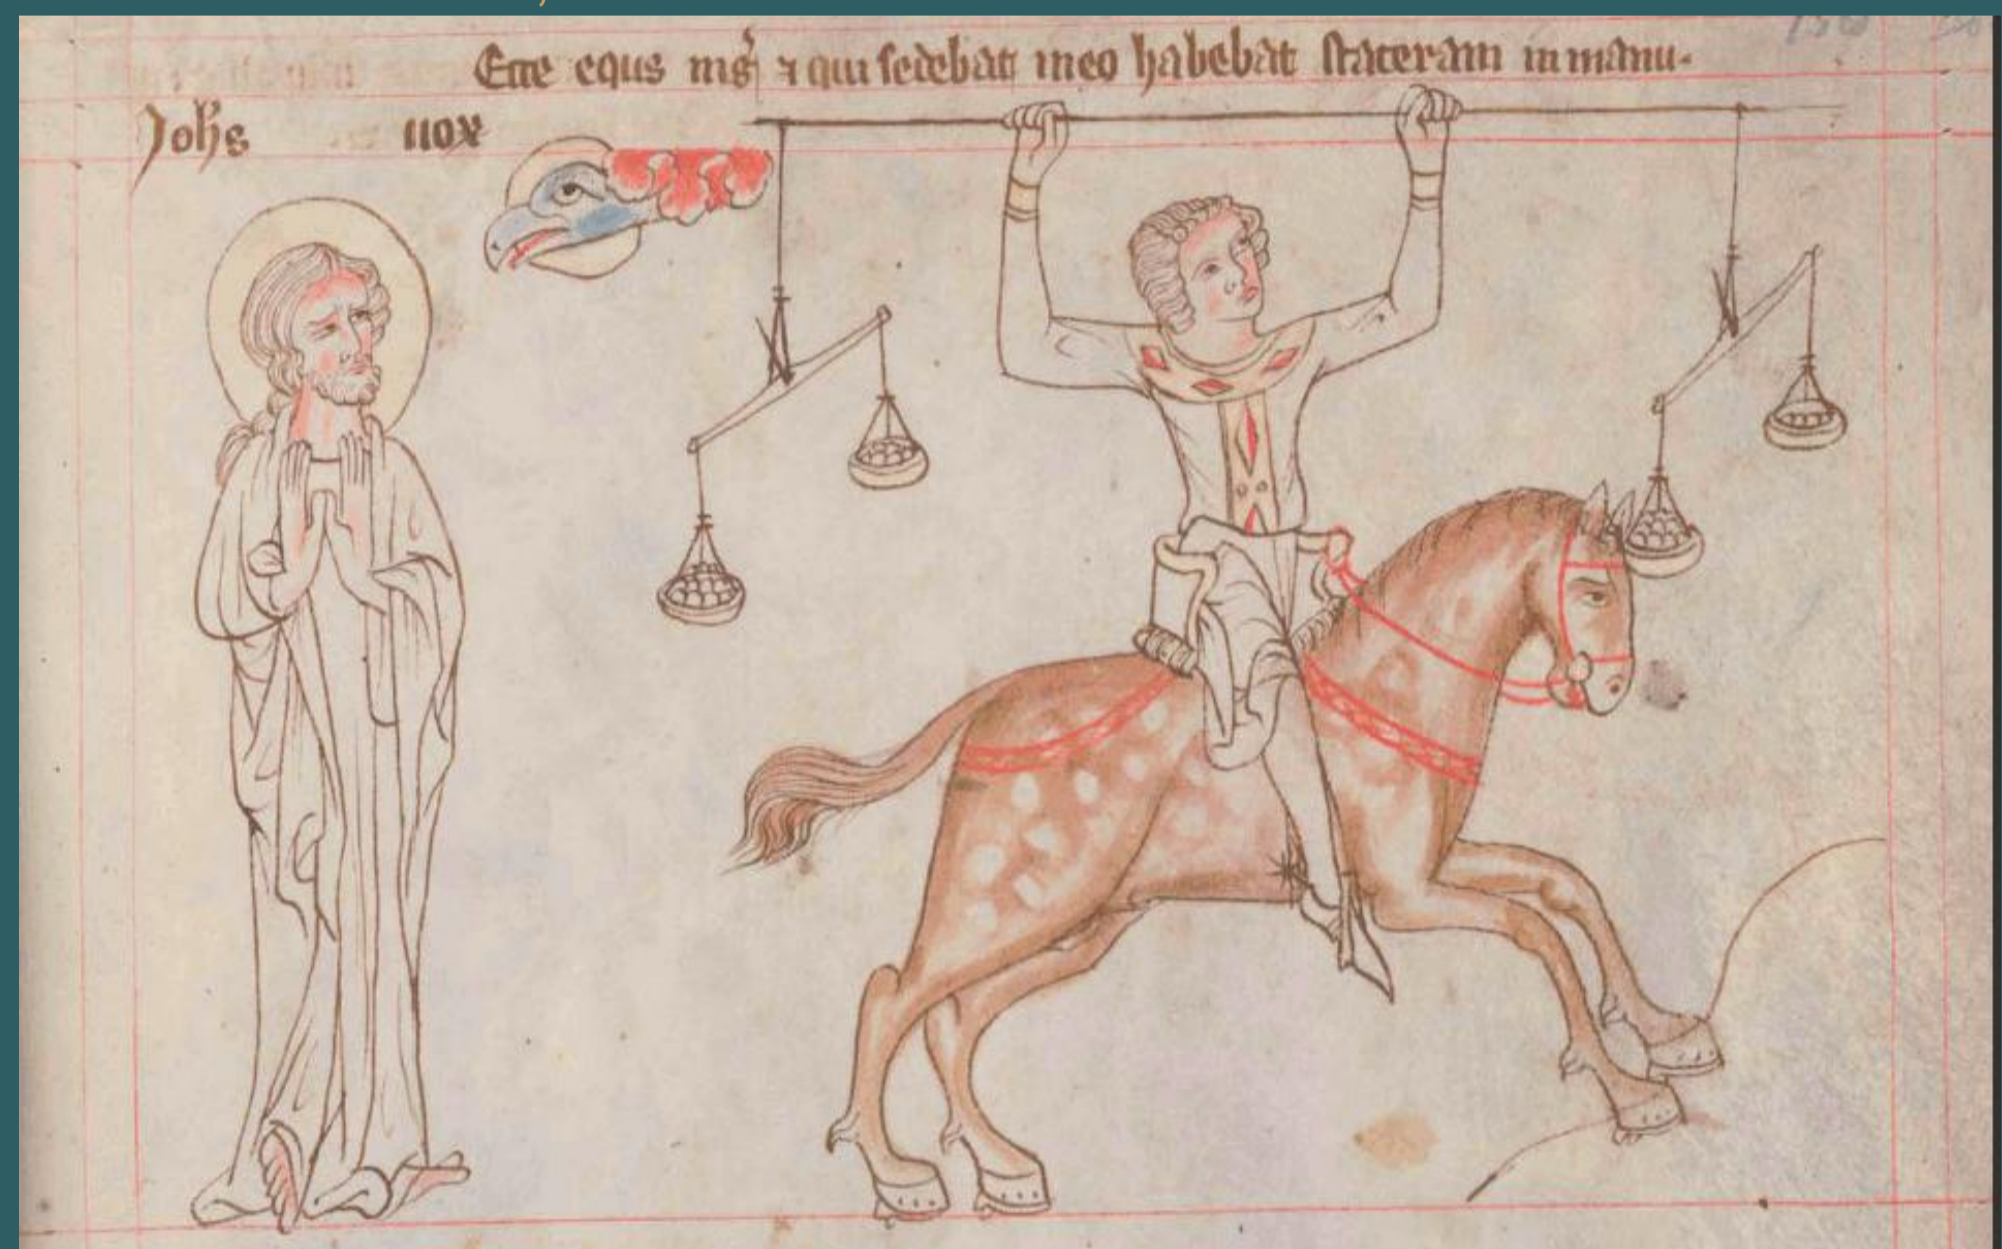 Ecce equus nig̉ ⁊ qui sedebat in eo habebat stateram in manu.
Joh̄s uox